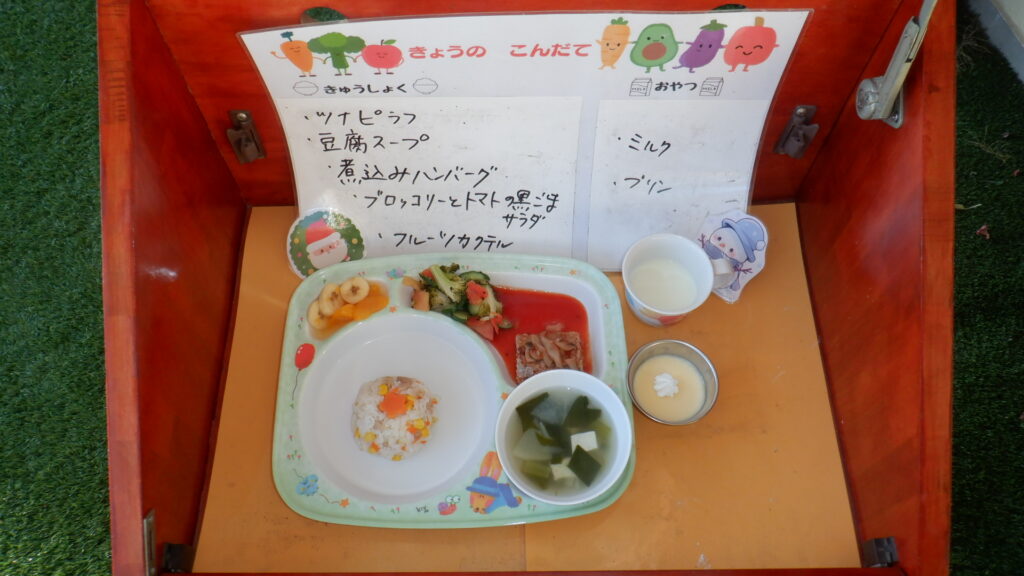 きょうの こんだて
きゅうしょく
・ツナピラフ
・豆腐スープ
・煮込みハンバーグ
・ブロッコリーとトマト黒ごま
サラダ
・フルーツカクテル
MILK おやつ MILK
・ミルク
・プリン